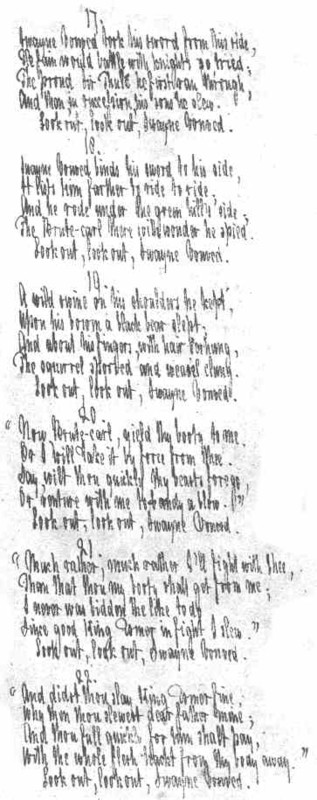 17.
Swayne Vonved took his sword from his side,
He fain would battle with knights so tried;
The proud Sir Thulé he first ran through,
And then in succession his sons he slew.
Look out, look out, Swayne Vonved.
18.
Swayne Vonved binds his sword to his side,
It lists him farther to ride to ride.
And he rode under the green hill's side;
The Brute-carl there with wonder he spied.
Look out, look out, Swayne Vonved.
19
A wild swine on his shoulders he kept,
Upon his bosom a black bear slept;
And about his fingers, with hair o'erhung,
The squirrel sported and weasel clung.
Look out, look out, Swayne Vonved.
20
"Now Brute-carl, yield thy booty to me.
Or I will take it by force from thee.
Say, wilt thou quickly thy beasts forego,
Or venture with me to bandy a blow?"
Look out, look out, Swayne Vonved.
21
"Much rather, much rather I'll fight with thee,
Than that thou my booty shalt get from me;
I never was bidden the like to do
Since good King Esmer in fight I slew."
Look out, look out, Swayne Vonved.
22.
"And didst thou slay King Esmer fine;
Why then thou slewest dear father mine;
And thou full quickly for him shalt pay,
With the whole flesh hackt from thy body away."
Look out, look out, Swayne Vonved.